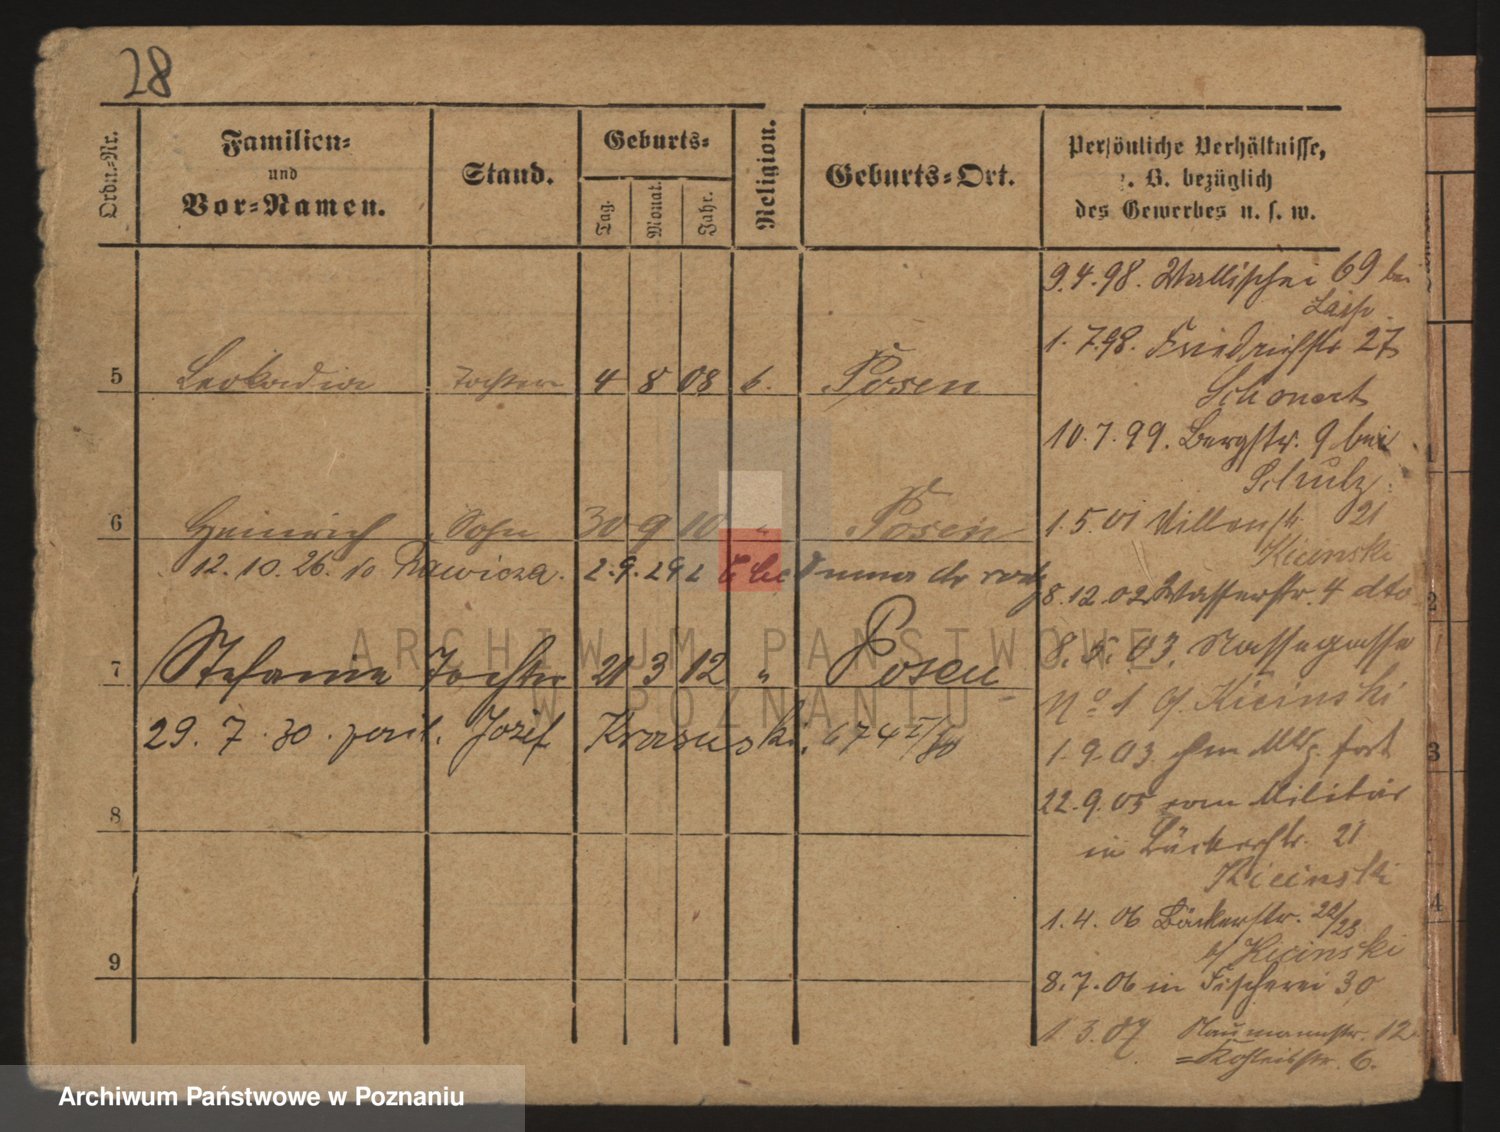 28
Ordn.-Nr.
Familien-
und
Vor-Namen.
Stand.
Geburts-
Tag.
Monat.
Jahr.
Religion.
Geburts-Ort.
Persönliche Verhältnisse,
z. B. bezüglich
des Gewerbes u. s. w.
5 Leokadia Tochter 4 8 08 k. Posen
6 Heinrich Sohn 30 9 10 " Posen
12. 10. 26. do Rawicza. 2. 9. 29
7 Stefanie Tochter 21 3 12 " Posen
29. 7. 30. Józef Krasuski. 674
8
9
9.4.98. Wallischei 69 bei
1.7.98. Friedrichstr 27
Schonert
10.7.99. Bergstr. 9 bei
Schulz.
1.5.01 21
Kicinski
8.12.02 Wasserstr. 4 dto
8.5.03. Nassegasse
No 1 b/ Kicinski
1.9.03 zum Mil. fort
22.9.05 vom Militär
in Bäckerstr. 21
Kicinski
1.4.06 Bäckerstr. 22/23
b/ Kicinski
8.7.06 in Fischerei 30
1.3.07 Naumannstr. 12
6.
ARCHIWUM PAŃSTWOWE
W POZNANIU
1
2
3
4
Archiwum Państwowe w Poznaniu